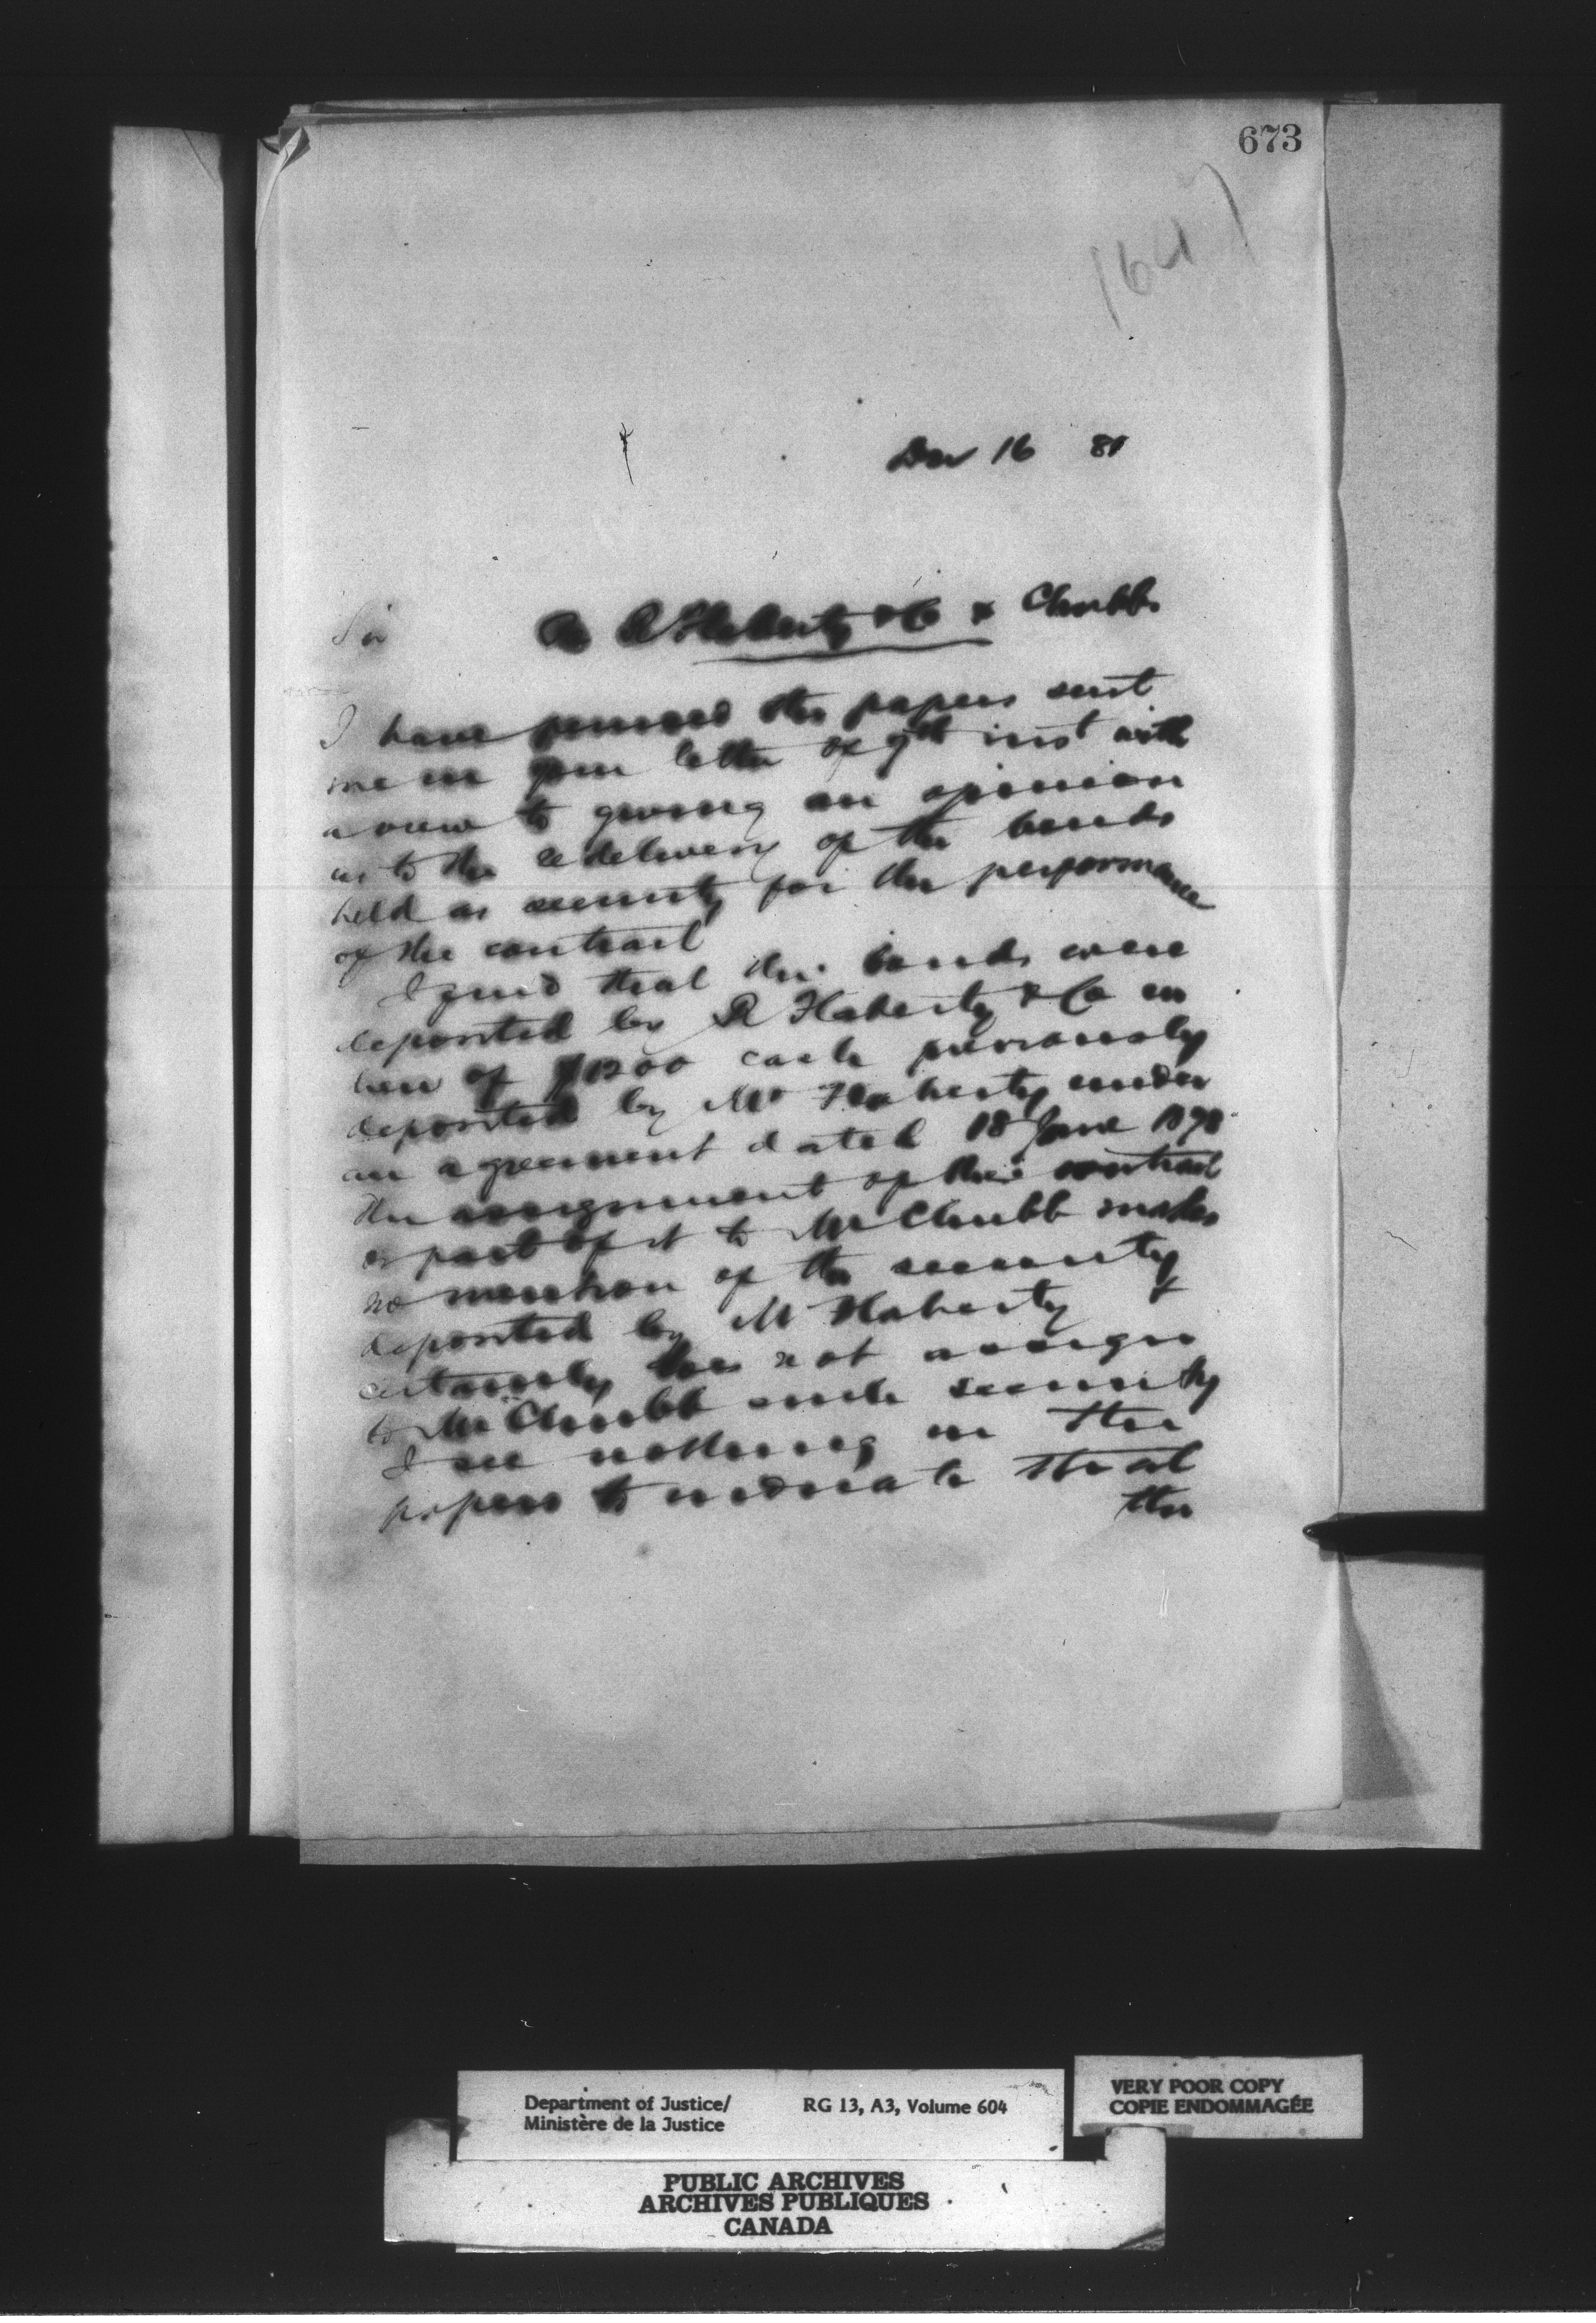 673
Dec 16 81
Sir
Re R Flaherty & Co & Chubb
I have perused the papers sent
me in your letter of 9th inst with
a view to giving an opinion
as to the redelivery of the bonds
held as security for the performance
of the contract
I find that the bonds were
deposited by R Flaherty & Co in
lieu of $1200 cash previously
deposited by Mr Flaherty under
an agreement dated 18 June 1878
the assignment of their contract
or part of it to Mr Chubb makes
no mention of the security
deposited by M Flaherty &
certainly does not assign
to Mr Chubb such security
I see nothing in the
papers to indicate that
the
Department of Justice/
Ministère de la Justice
RG 13, A3, Volume 604
VERY POOR COPY
COPIE ENDOMMAGÉE
PUBLIC ARCHIVES
ARCHIVES PUBLIQUES
CANADA